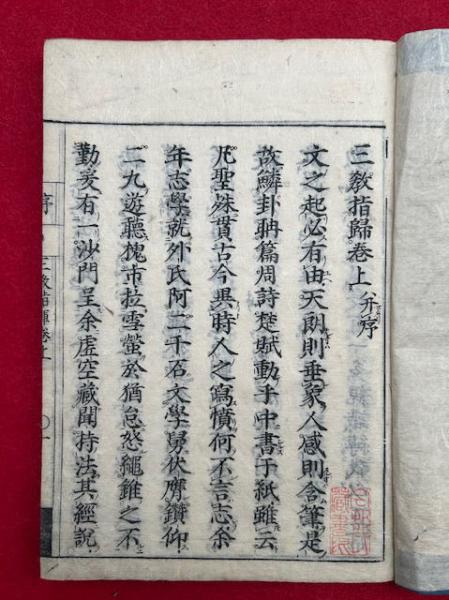 三敎指歸卷上 并序
文之起必有由天朗則垂象人感則含筆是
故鱗卦聃篇周詩楚賦動于中書于紙雖云
凡聖殊貫古今異時人之寫憤何不言志余
年志學就外氏阿二千石文學舅伏膺鑽仰
二九遊聽槐市拉雪螢於猶怠怒繩錐之不
勤爰有一沙門呈余虛空藏聞持法其經說
序 三敎指歸卷上 〇一